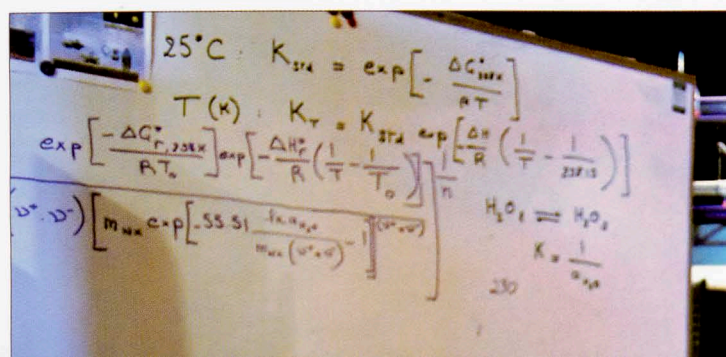 25°C : K_std = exp[- ΔG°_298K / RT]
T(K) : K_T = K_std exp[-ΔH/R (1/T - 1/298.15)]
exp[-ΔG°_r,298K / RT_o] exp[-ΔH°_r / R (1/T - 1/T_o)]]^(1/n)
[m_wx exp[-55.51 ln a_H2O / m_wx (ν⁺+ν⁻) - 1]]^(ν⁺+ν⁻)
H₂O ⇌ H₂O
K = 1 / a_H2O
230